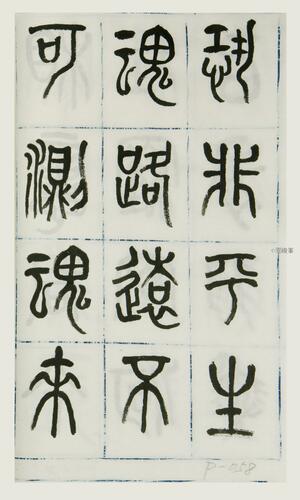 恐非平生
魂路遠不
可測魂來
P-058